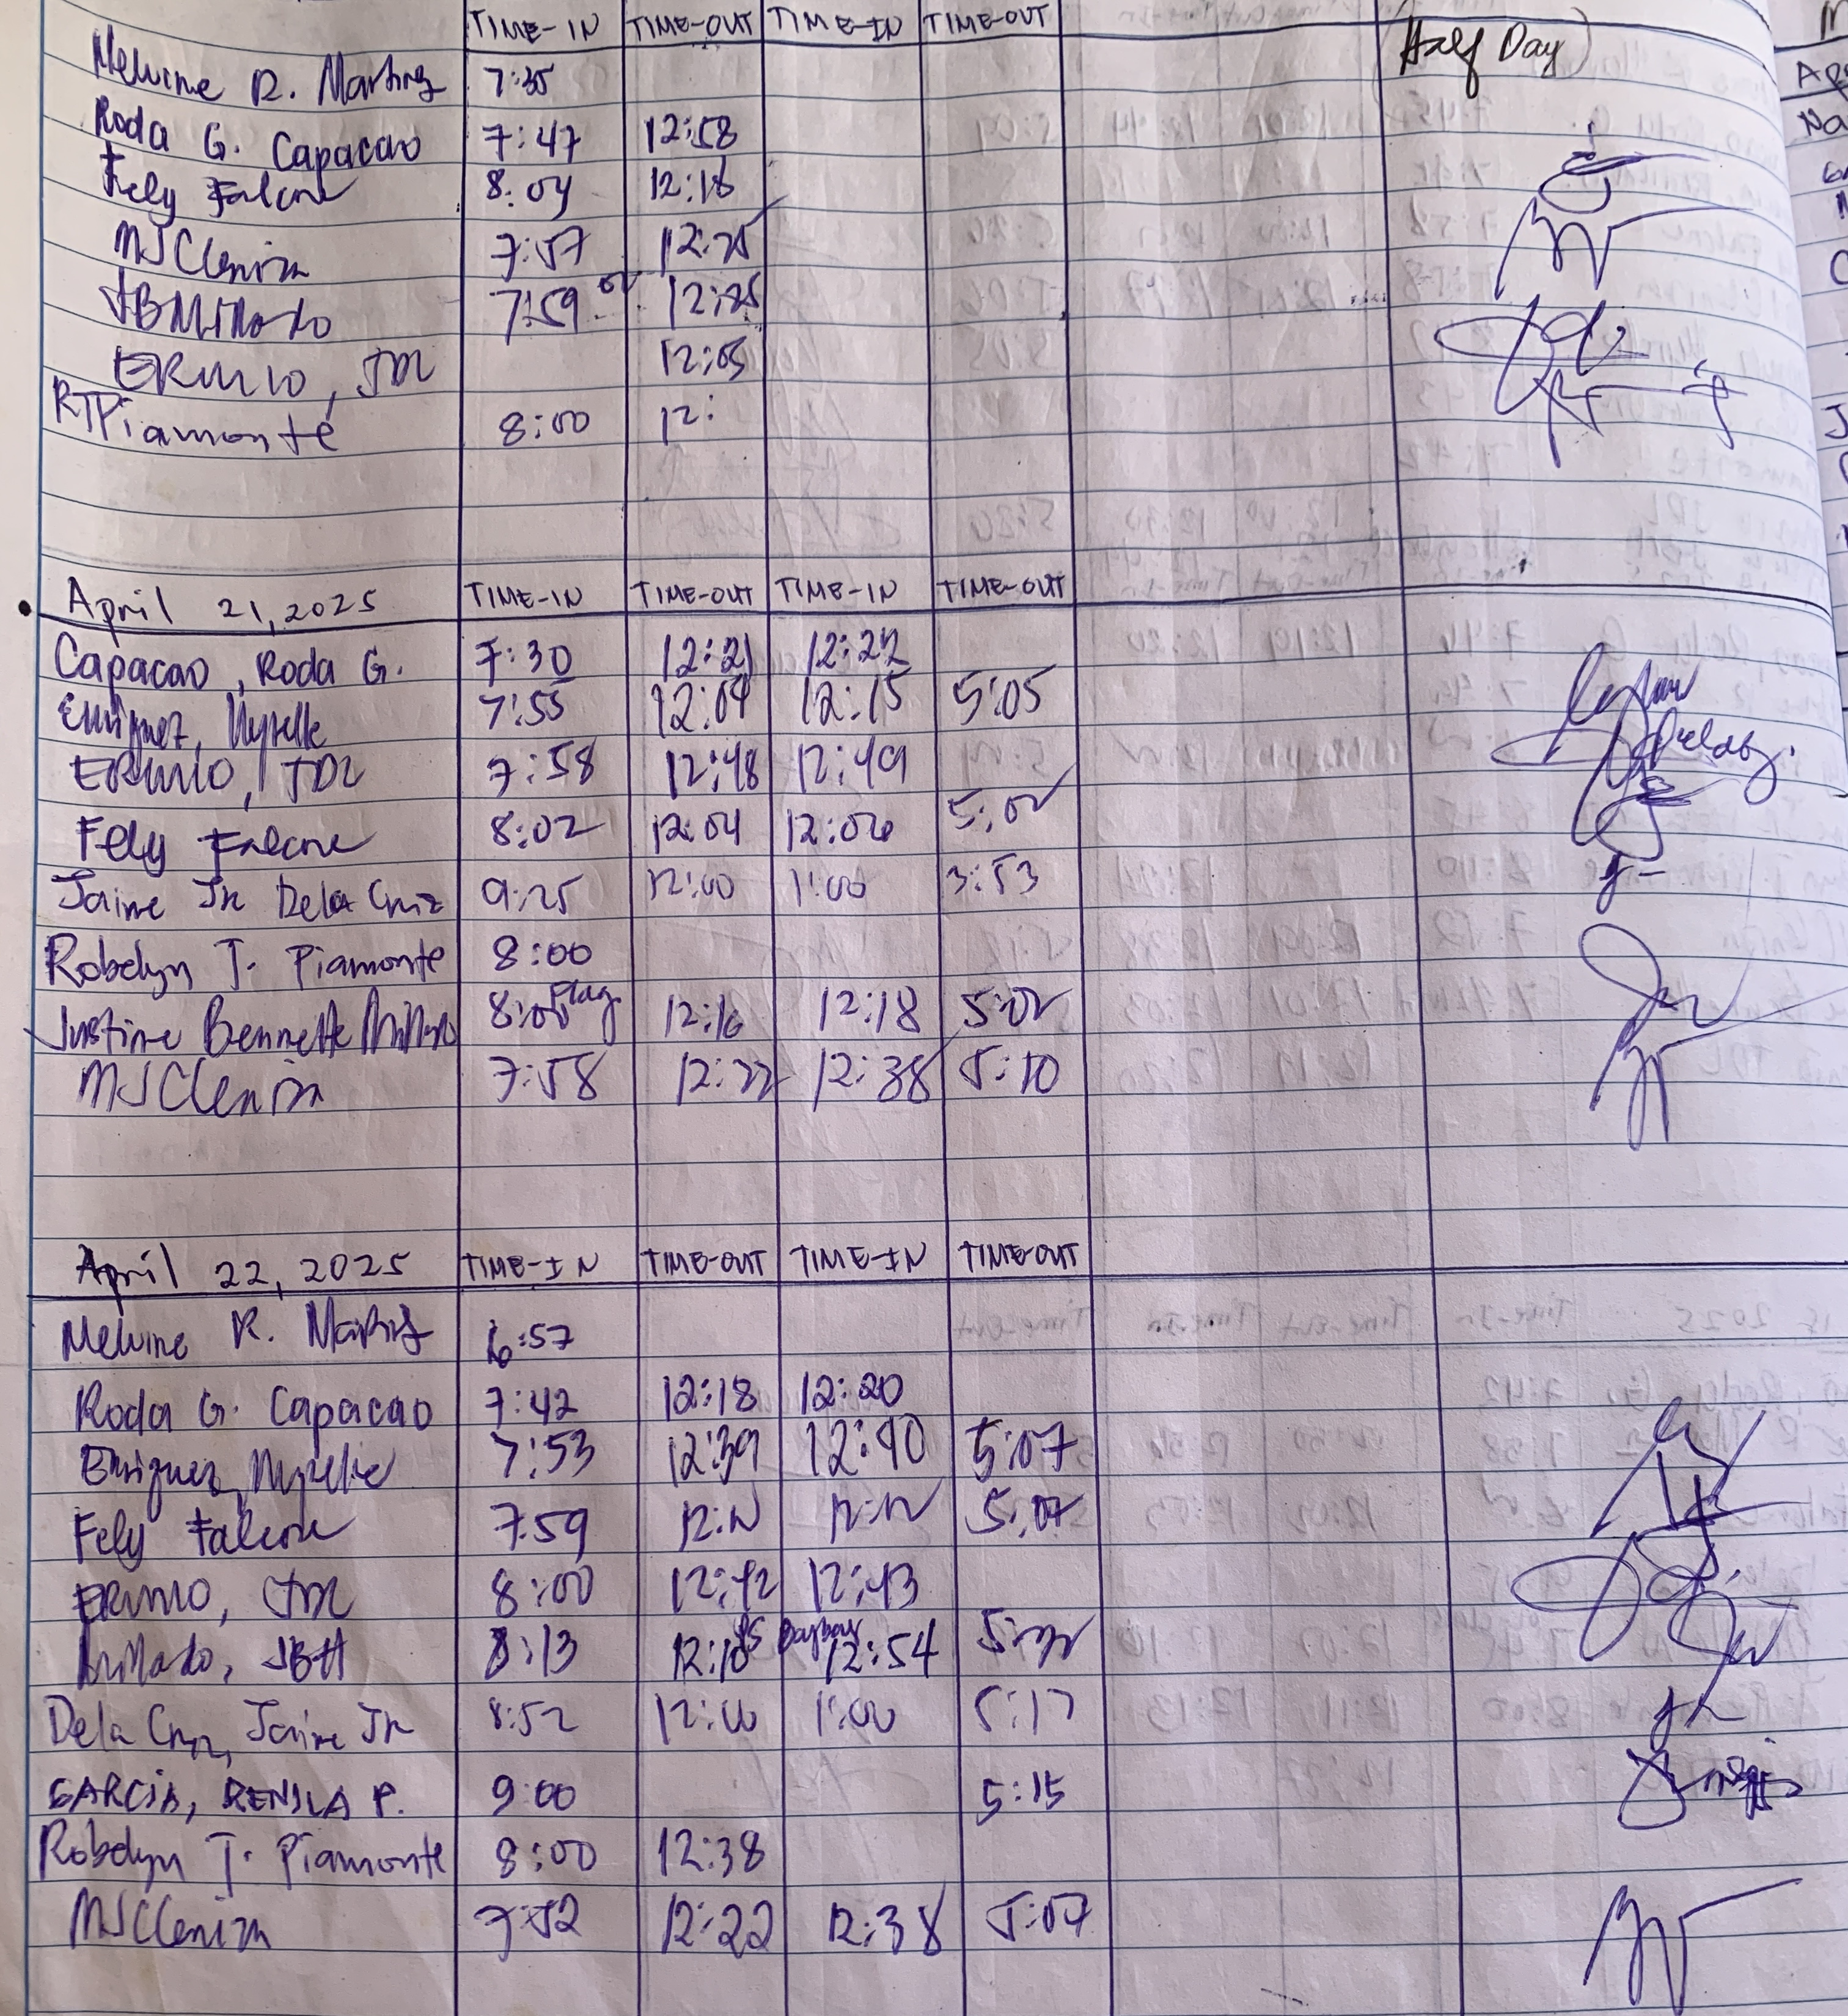 TIME-IN TIME-OUT TIME-IN TIME-OUT
(Half Day)
Melvine R. 7:35
Roda G. Capacao 7:47 12:58
Fely Falcone 8:04 12:18
MJ Cleniza 7:57 12:25
JBMillado 7:59 12:25
ERMIO, JDL 12:05
RTPiamonte 8:00 12:
April 21, 2025 TIME-IN TIME-OUT TIME-IN TIME-OUT
Capacao, Roda G. 7:30 12:21 12:22
Enriquez, Myrelle 7:55 12:04 12:15 5:05
ERMIO, JDL 7:58 12:48 12:49
Fely Falcone 8:02 12:04 12:06 5:02
Jaime Jr Dela Cruz 9:25 12:00 1:00 3:53
Robelyn T. Piamonte 8:00
Justine Bennette Millado 8:00 Flag 12:16 12:18 5:02
MJ Cleniza 7:58 12:22 12:38 5:10
April 22, 2025 TIME-IN TIME-OUT TIME-IN TIME-OUT
Melvine R. 6:57
Roda G. Capacao 7:42 12:18 12:20
Enriquez, Myrelle 7:53 12:39 12:40 5:07
Fely Falcone 7:59 5:07
ERMIO, JDL 8:00 12:42 12:43
Millado, JBH 8:13 12:18 Baybay 12:54
Dela Cruz, Jaime Jr 8:52 12:00 1:00 5:17
GARCIA, RENILA P. 9:00 5:15
Robelyn T. Piamonte 8:00 12:38
MJ Cleniza 7:52 12:22 12:38 5:07